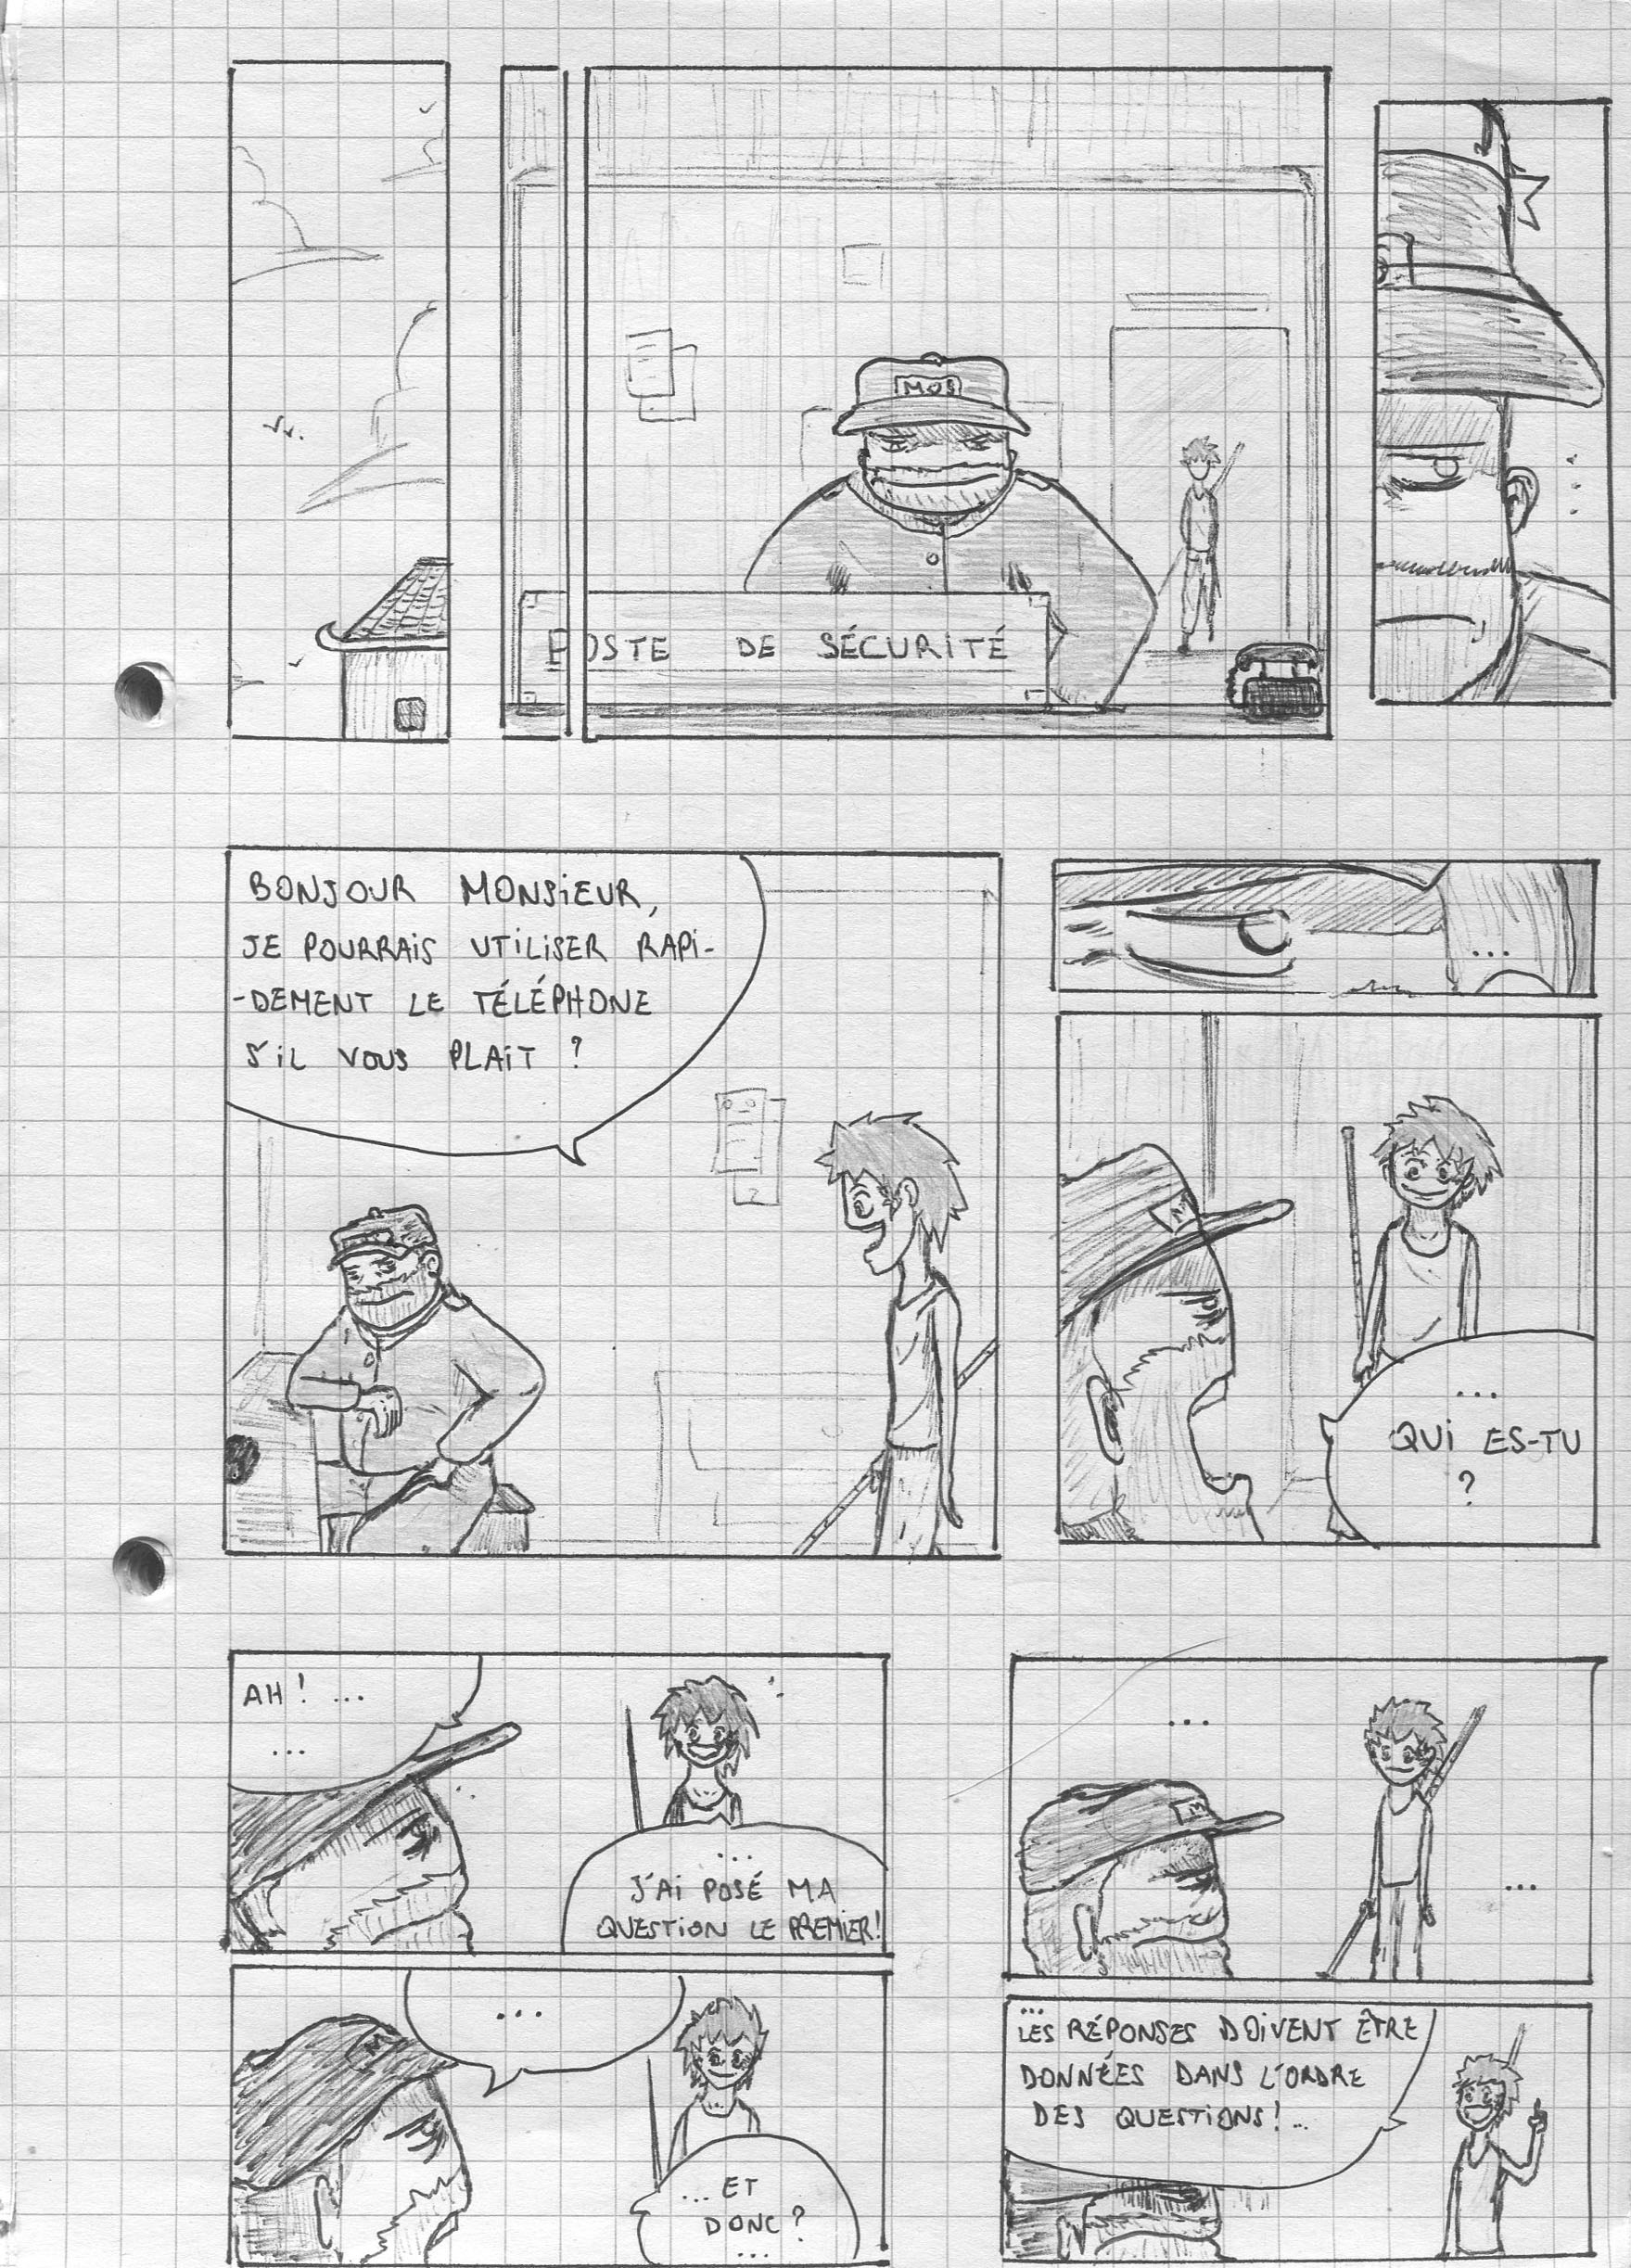 MOS
POSTE DE SÉCURITÉ
BONJOUR MONSIEUR,
JE POURRAIS UTILISER RAPI-
-DEMENT LE TÉLÉPHONE
S'IL VOUS PLAIT ?
...
M
...
QUI ES-TU
?
AH ! ...
...
...
J'AI POSÉ MA
QUESTION LE PREMIER !
...
M
...
M
...
... ET
DONC ?
...
...
LES RÉPONSES DOIVENT ÊTRE
DONNÉES DANS L'ORDRE
DES QUESTIONS ! ..